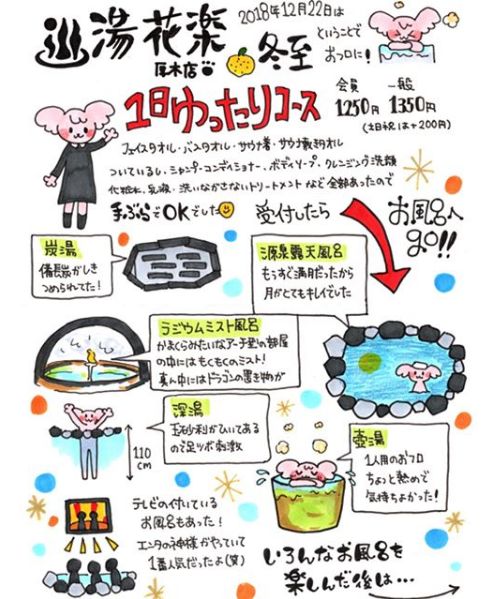 湯花楽
厚木店
2018年12月22日は
冬至
ということで
お风呂に!
1日ゆったりコース
会員 一般
1250円 1350円
(土日祝は+200円)
フェイスタオル・バスタオル・サウナ着・サウナ敷きタオル
ついているし、シャンプー・コンディショナー、ボディソープ、クレンジング洗顔
化粧水、乳液・洗いながさないトリートメントなど全部あったので
手ぶらでOKでした
受付したら
お風呂へ
go!!
炭湯
備長炭がしき
つめられてた!
源泉露天風呂
もうすぐ満月だったから
月がとてもキレイでした
ラジウムミスト風呂
かまくらみたいなアーチ型の部屋
の中にはもくもくのミスト!
真ん中にはドラゴンの置き物が
深湯
玉砂利がひいてある
ので足ツボ刺激
110
cm
壺湯
1人用のおフロ
ちょっと熱めで
気持ちよかった!
テレビの付いている
お風呂もあった!
エンタの神様がやっていて
1番人気だったよ(笑)
いろんなお風呂を
楽しんだ後は…